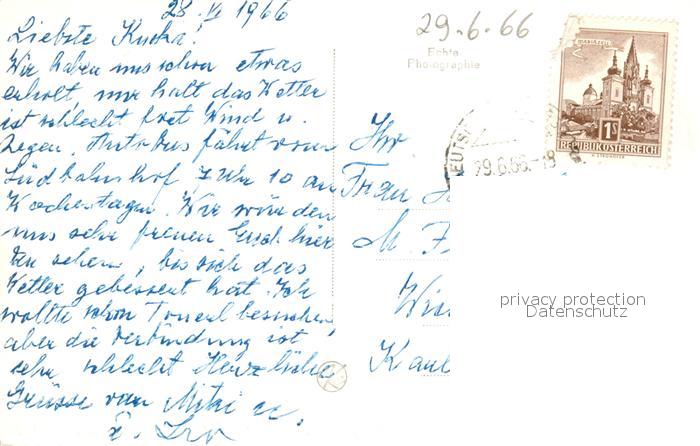 28. VI 1966
Liebste Kucka!
Wir haben uns schon etwas
erholt, nur halt das Wetter
ist schlecht fest Wind u.
Regen. Autobus fährt vom
Südbahnhof 7 Uhr 10 an
Wochentagen. Wir würden
uns sehr freuen Euch hier
zu sehen, bis sich das
Wetter gebessert hat. Ich
wollte schon besuchen,
aber die Verbindung ist
sehr schlecht Herzliche
Grüsse von Mitzi u.
29-6-66
Echte
Photographie
MARIAZELL
1S
REPUBLIK ÖSTERREICH
29.6.66-18
Frau
M.
privacy protection
Datenschutz